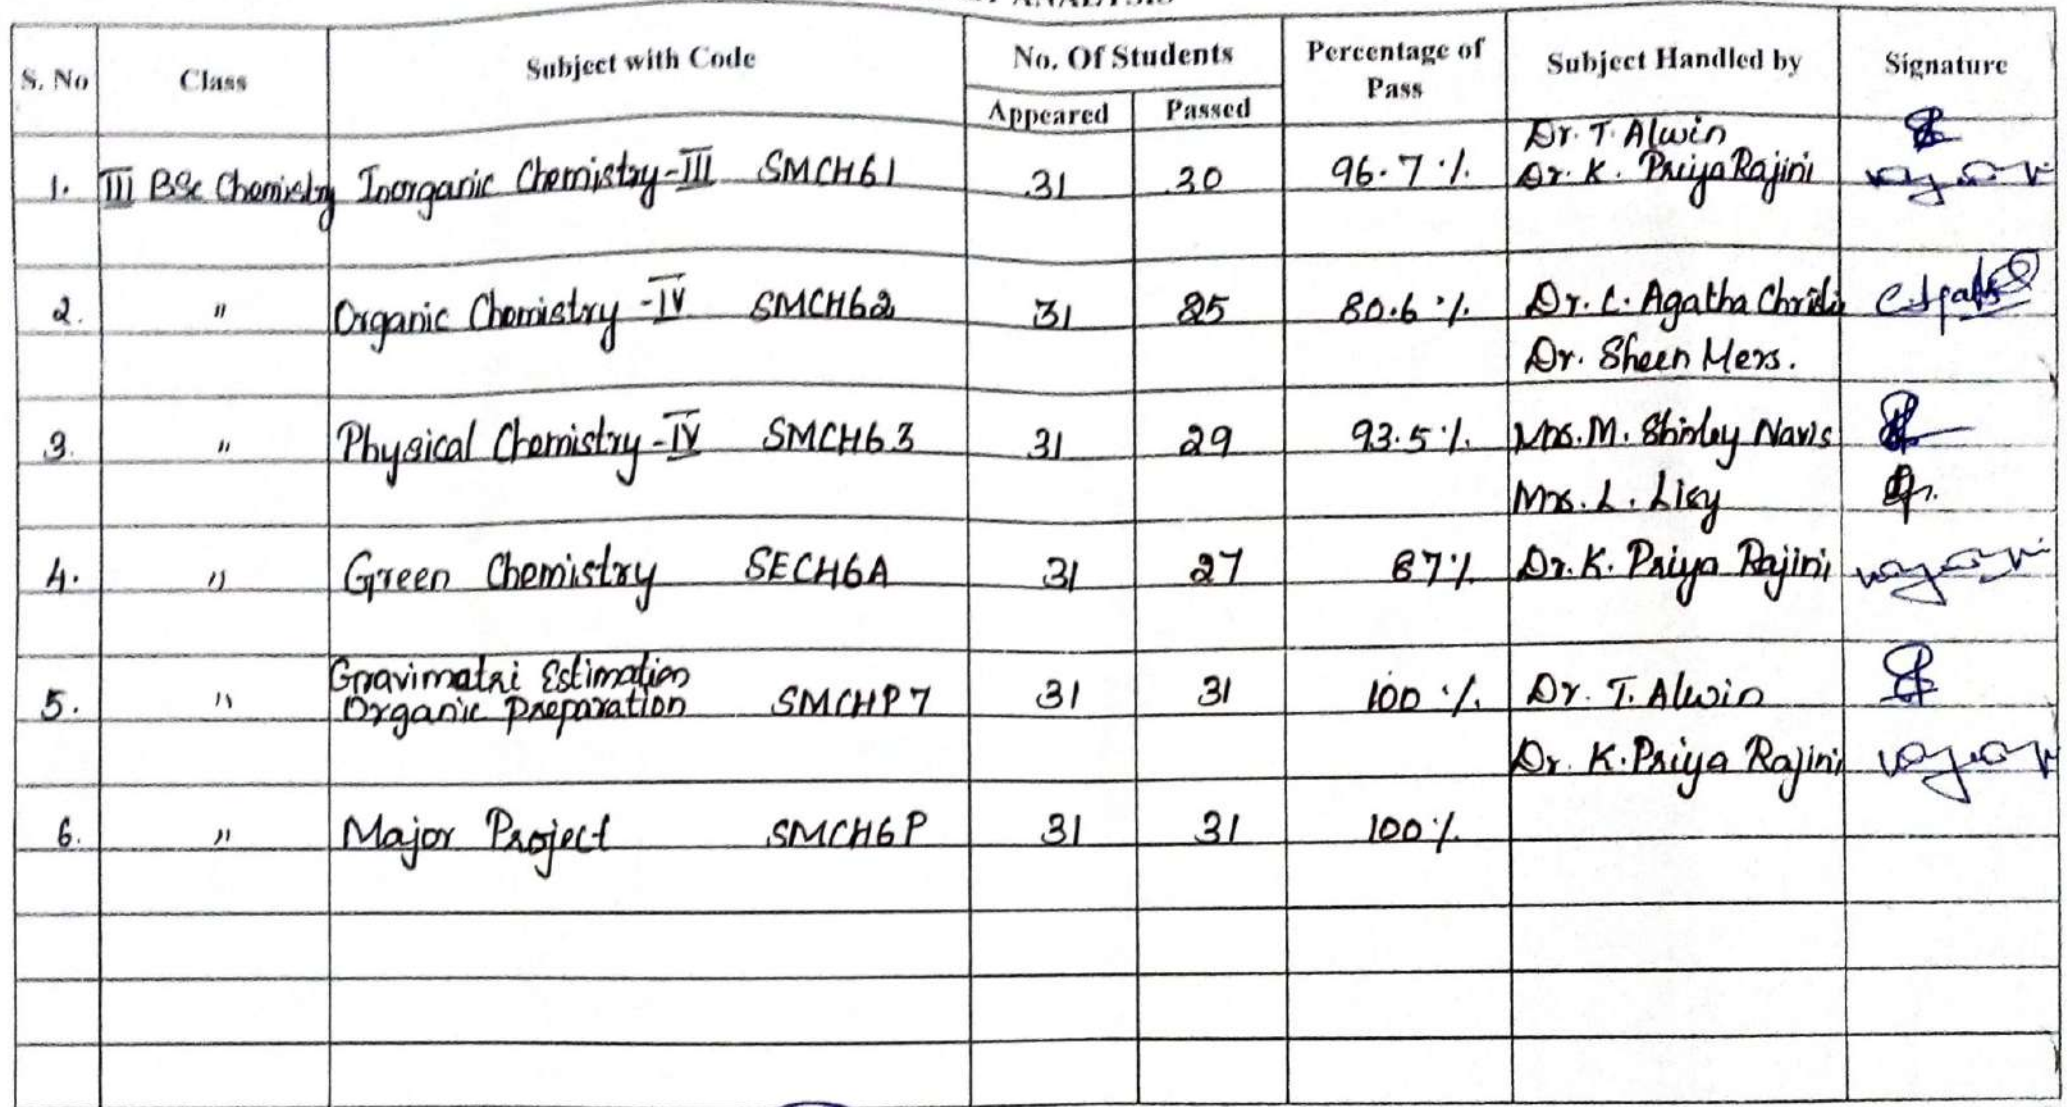 ANALYSIS
S. No Class Subject with Code No. Of Students Percentage of Pass Subject Handled by Signature
Appeared Passed
1. III BSc Chemistry Inorganic Chemistry-III SMCH61 31 30 96.7 % Dr. T. Alwin
Dr. K. Priya Rajini
2. " Organic Chemistry -IV SMCH62 31 25 80.6 % Dr. C. Agatha Christy
Dr. Sheen Mers.
3. " Physical Chemistry -IV SMCH63 31 29 93.5 % Mrs. M. Shirley Navis
Mrs. L. Lisy
4. " Green Chemistry SECH6A 31 27 87% Dr. K. Priya Rajini
5. " Gravimatri Estimation
Organic preparation SMCHP7 31 31 100 % Dr. T. Alwin
Dr. K. Priya Rajini
6. " Major Project SMCH6P 31 31 100%